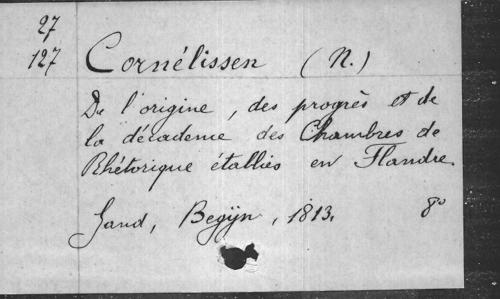 27
127
Cornélissen (N.)
De l'origine, des progrès et de
la décadence des Chambres de
Rhétorique établies en Flandre
Gand, Begÿn, 1813. 8º